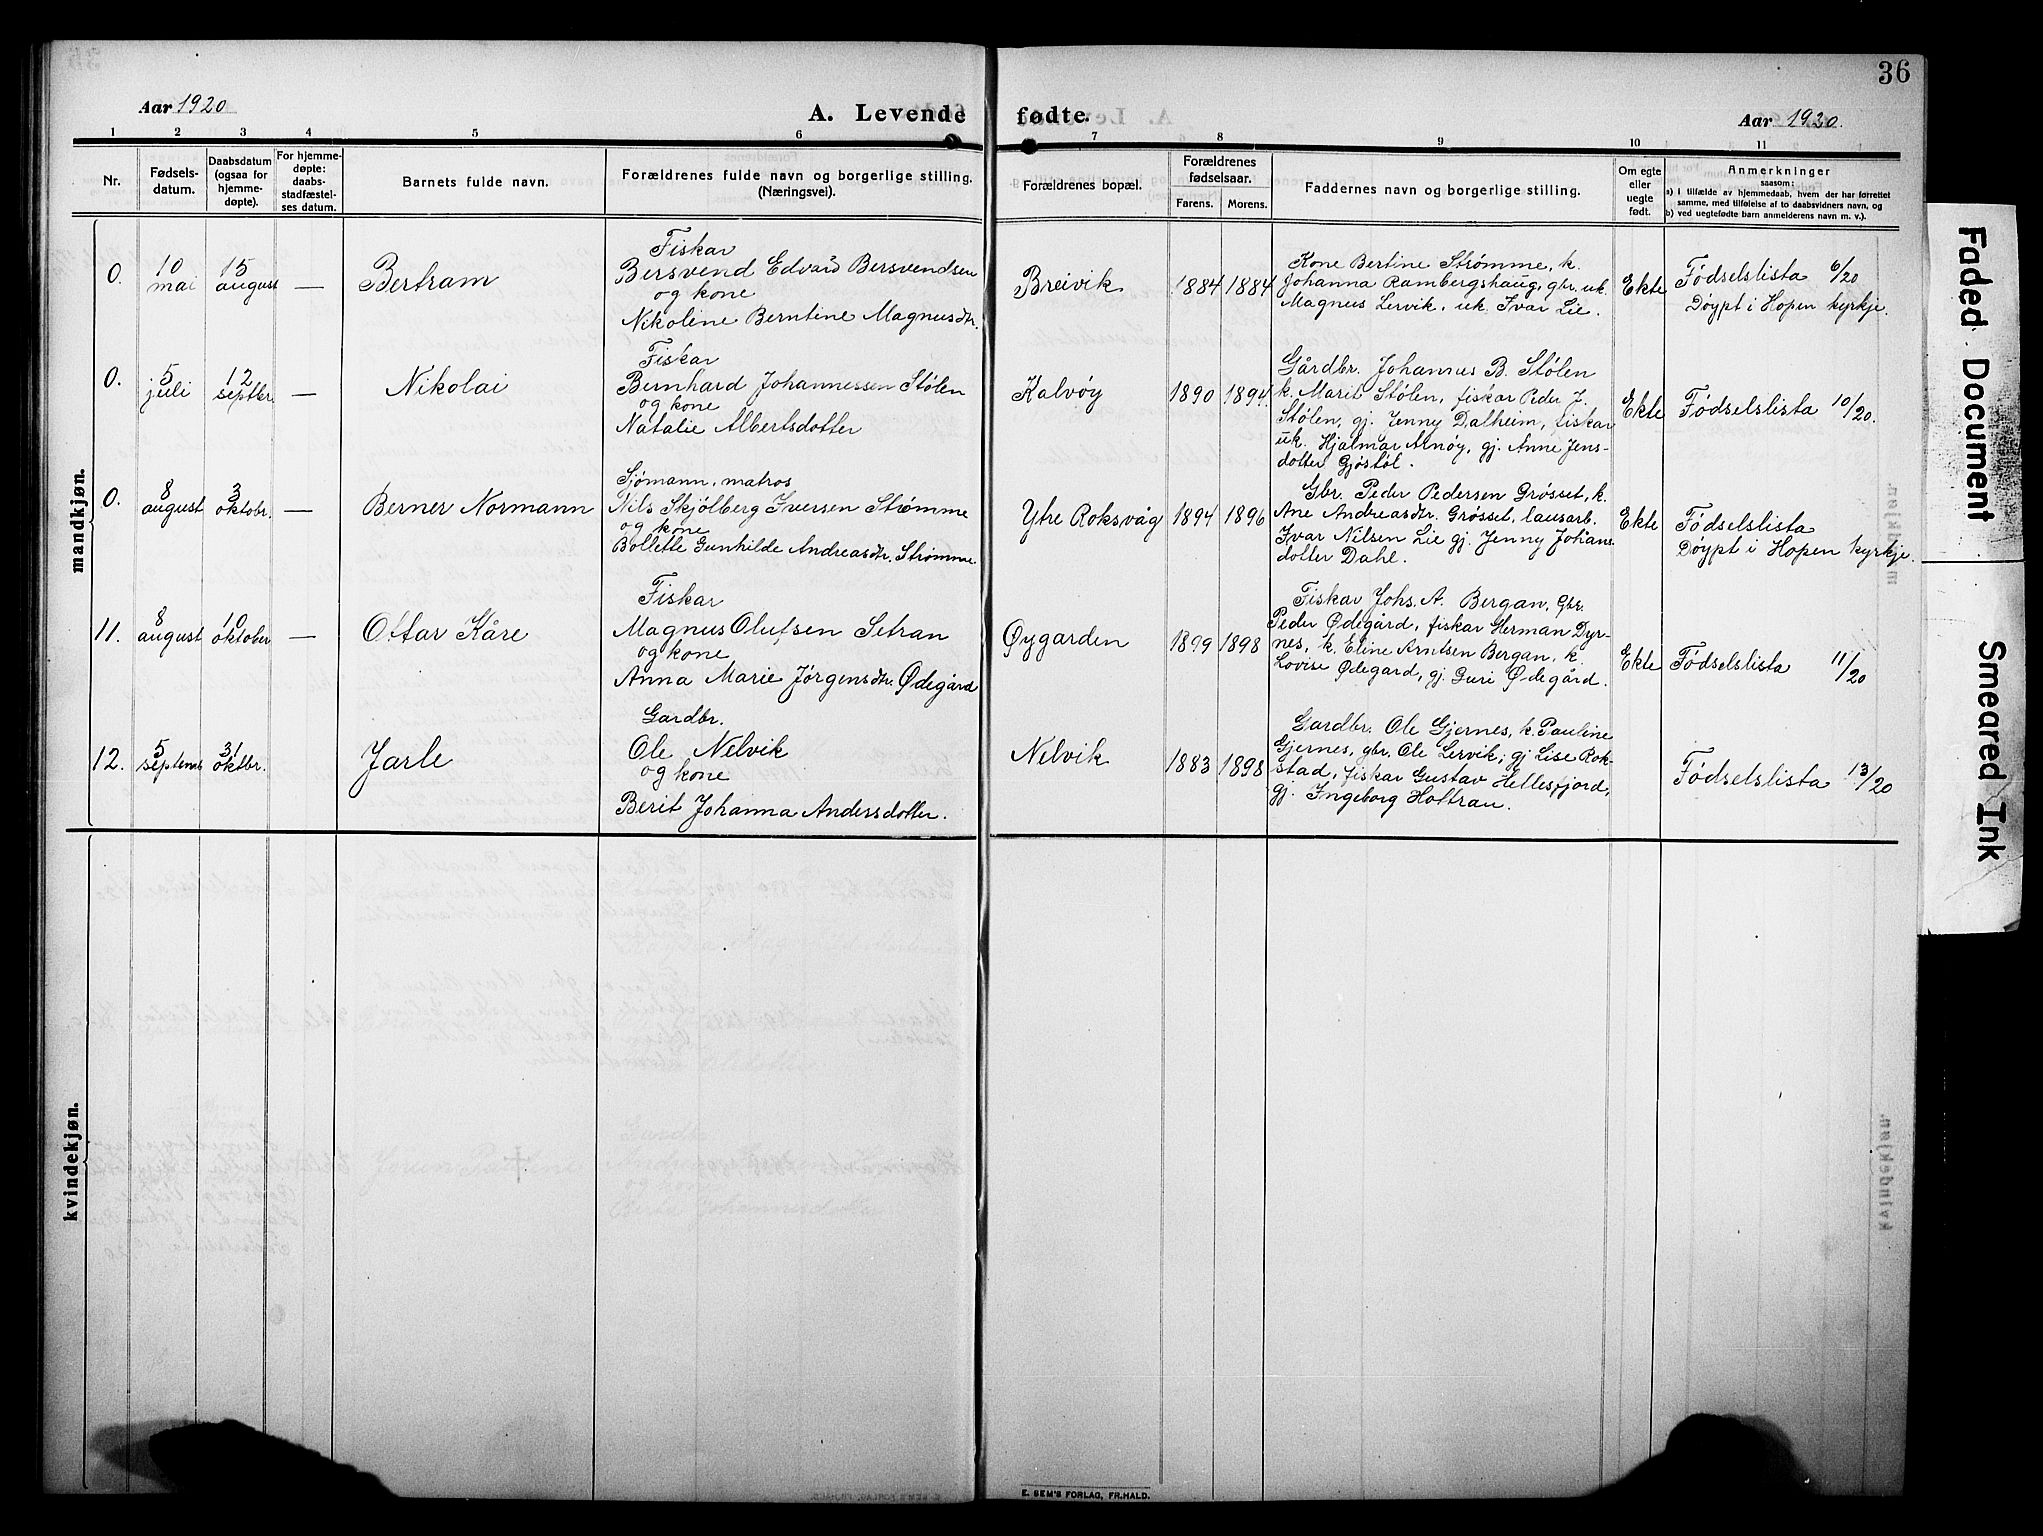 36
Aar 1920
A. Levende fødte.
Aar 1920.
1 2 3 4 5 6 7 8 9 10 11
Nr.
Fødsels-
datum.
Daabsdatum
(ogsaa for
hjemme-
døpte).
For hjemme-
døpte:
daabs-
stadfæstel-
ses datum.
Barnets fulde navn.
Forældrenes fulde navn og borgerlige stilling.
(Næringsvei).
Forældrenes bopæl.
Forældrenes
fødselsaar.
Farens. Morens.
Faddernes navn og borgerlige stilling.
Om egte
eller
uegte
født.
Anmerkninger
saasom:
a) i tilfælde av hjemmedaab, hvem der har førrettet
samme, med tilføielse af to daabsvidners navn, og
b) ved uegtefødte barn anmelderens navn m. v.).
mandkjøn.
0.
10
mai
15
august
—
Bertram
Fiskar
Bersvend Edvard Bersvendsen
og kone
Nikoline Berntine Magnusdtr.
Breivik
1884 1884
Kone Bertine Strømme, k.
Johanna Rambergshaug, gbr. uk.
Magnus Lervik, uk. Ivar Lie.
Ekte
Fødselslista 6/20
Døypt i Hopen kyrkje.
0.
5
juli
12
septbr.
—
Nikolai
Fiskar
Bernhard Johannessen Stølen
og kone
Natalie Albertsdotter
Kalvøy
1890 1894
Gårdbr. Johannes B. Stølen
k. Marit Stølen, fiskar Peder J.
Stølen, gj. Jenny Dalheim, fiskar
uk. Hjalmar Arnøy, gj. Anne Jens-
dotter Gjøstøl.
Ekte
Fødselslista 10/20.
0.
8
august
3
oktobr.
—
Berner Normann
Sjømann, matros
Nils Skjølberg Iversen Strømme
og kone
Bollette Gunhilde Andreasdtr. Strømme
Ytre Roksvåg
1894 1896
Gbr. Peder Pedersen Grøsset, k.
Ane Andreasdtr. Grøsset, lausarb.
Ivar Nilsen Lie gj. Jenny Johans-
dotter Dahl.
Ekte
Fødselslista
Døypt i Hopen kyrkje.
11.
8
august
10
oktober
—
Ottar Kåre
Fiskar
Magnus Olufsen Setran
og kone
Anna Marie Jørgensdtr. Ødegård
Øygarden
1899 1898
Fiskar Johs. A. Bergan, Gbr.
Peder Ødegård, fiskar Herman Dyr-
nes, k. Eline Arntsen Bergan, k.
Lovise Ødegard, gj. Guri Ødegård.
Ekte
Fødselslista 11/20
12.
5
septemb
31
oktbr.
Jarle
Gardbr.
Ole Nelvik
og kone
Berit Johanna Andersdotter.
Nelvik
1883 1898
Gardbr. Ole Gjernes, k. Pauline
Gjernes, gbr. Ole Lervik, gj Lise Rok-
stad, fiskar Gustav Hellesfjord,
gj. Ingeborg Holtran.
Fødselslista 13/20
kvindekjøn.
E. SEM'S FORLAG, FR.HALD.
Faded Document
Smeared Ink